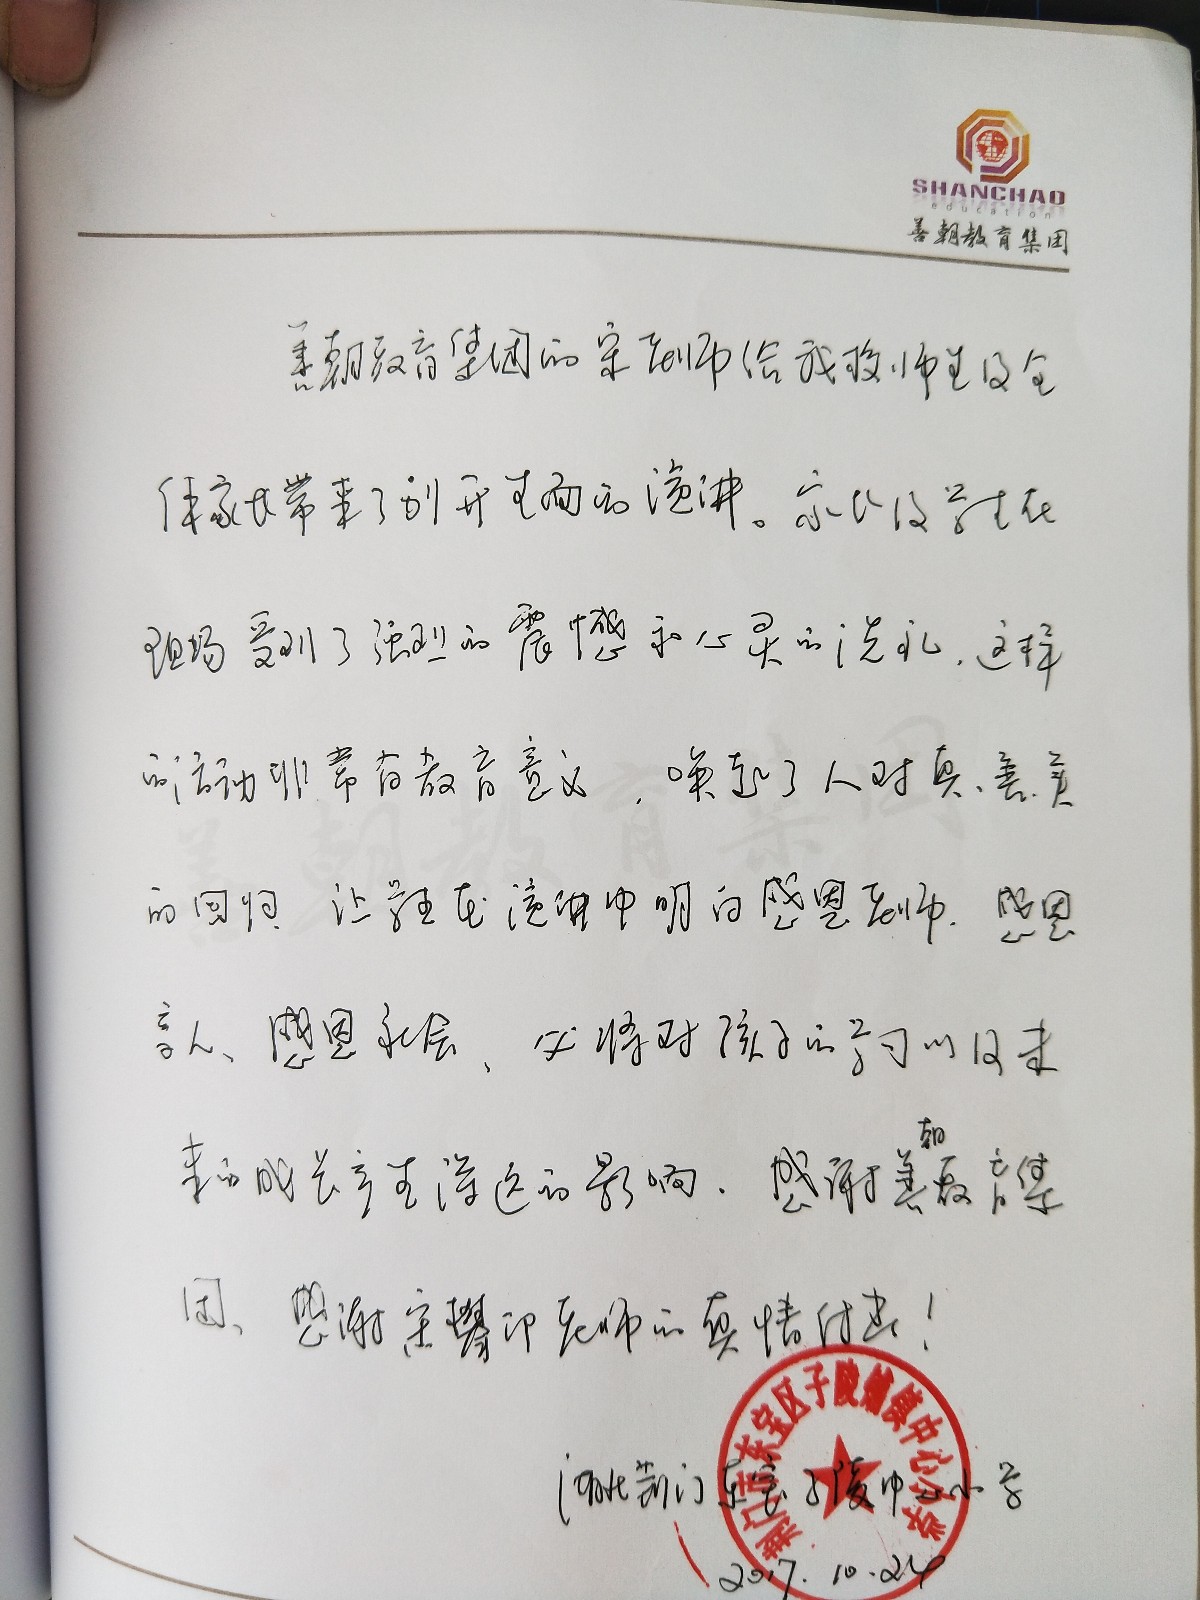 SHANCHAO
education
善朝教育集团
善朝教育集团的宋老师给我校师生及全
体家长带来了别开生面的演讲。家长及学生在
现场受到了强烈的震憾和心灵的洗礼,这样
的活动非常有教育意义,唤起了人对真、善、美
的回归,让学生在演讲中明白感恩老师、感恩
亲人、感恩社会,必将对孩子的学习以及未
来的成长产生深远的影响。感谢善朝教育集
团、感谢宋攀印老师的真情付出!
湖北荆门东宝子陵中心小学
2017.10.24
荆门市东宝区子陵铺镇中心小学
善朝教育集团